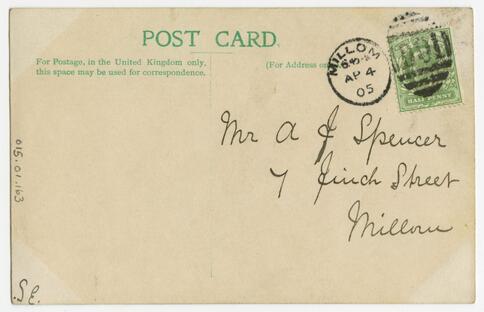 POST CARD.
For Postage, in the United Kingdom only,
this space may be used for correspondence.
(For Address
MILLOM
AP 4
05
HALF PENNY
Mr A J Spencer
7 Finch Street
Millom
015.01.163
.SE.